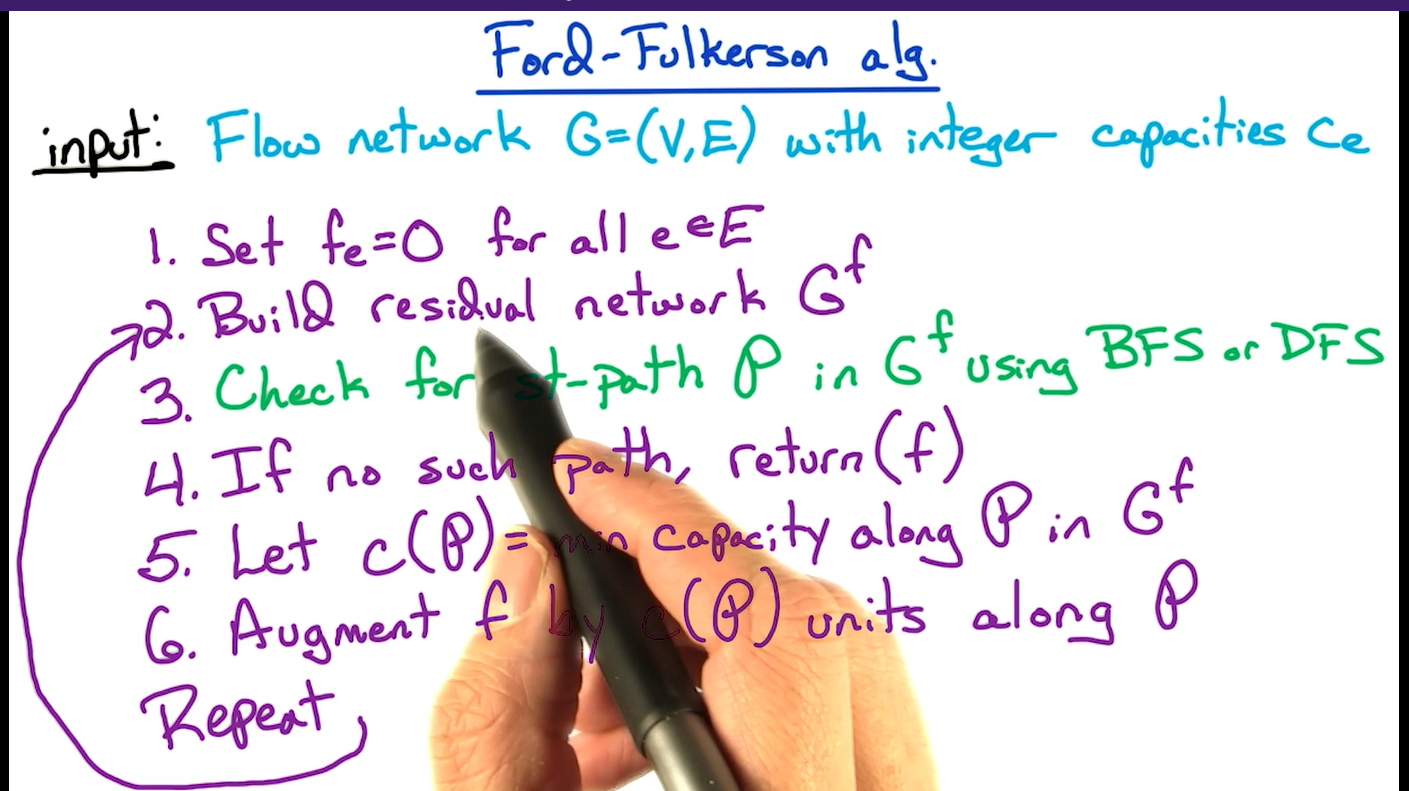 Ford-Fulkerson alg.
input: Flow network G=(V,E) with integer capacities Ce
1. Set fe=0 for all e∈E
2. Build residual network G^f
3. Check for st-path P in G^f using BFS or DFS
4. If no such path, return(f)
5. Let c(P)= min capacity along P in G^f
6. Augment f by c(P) units along P
Repeat